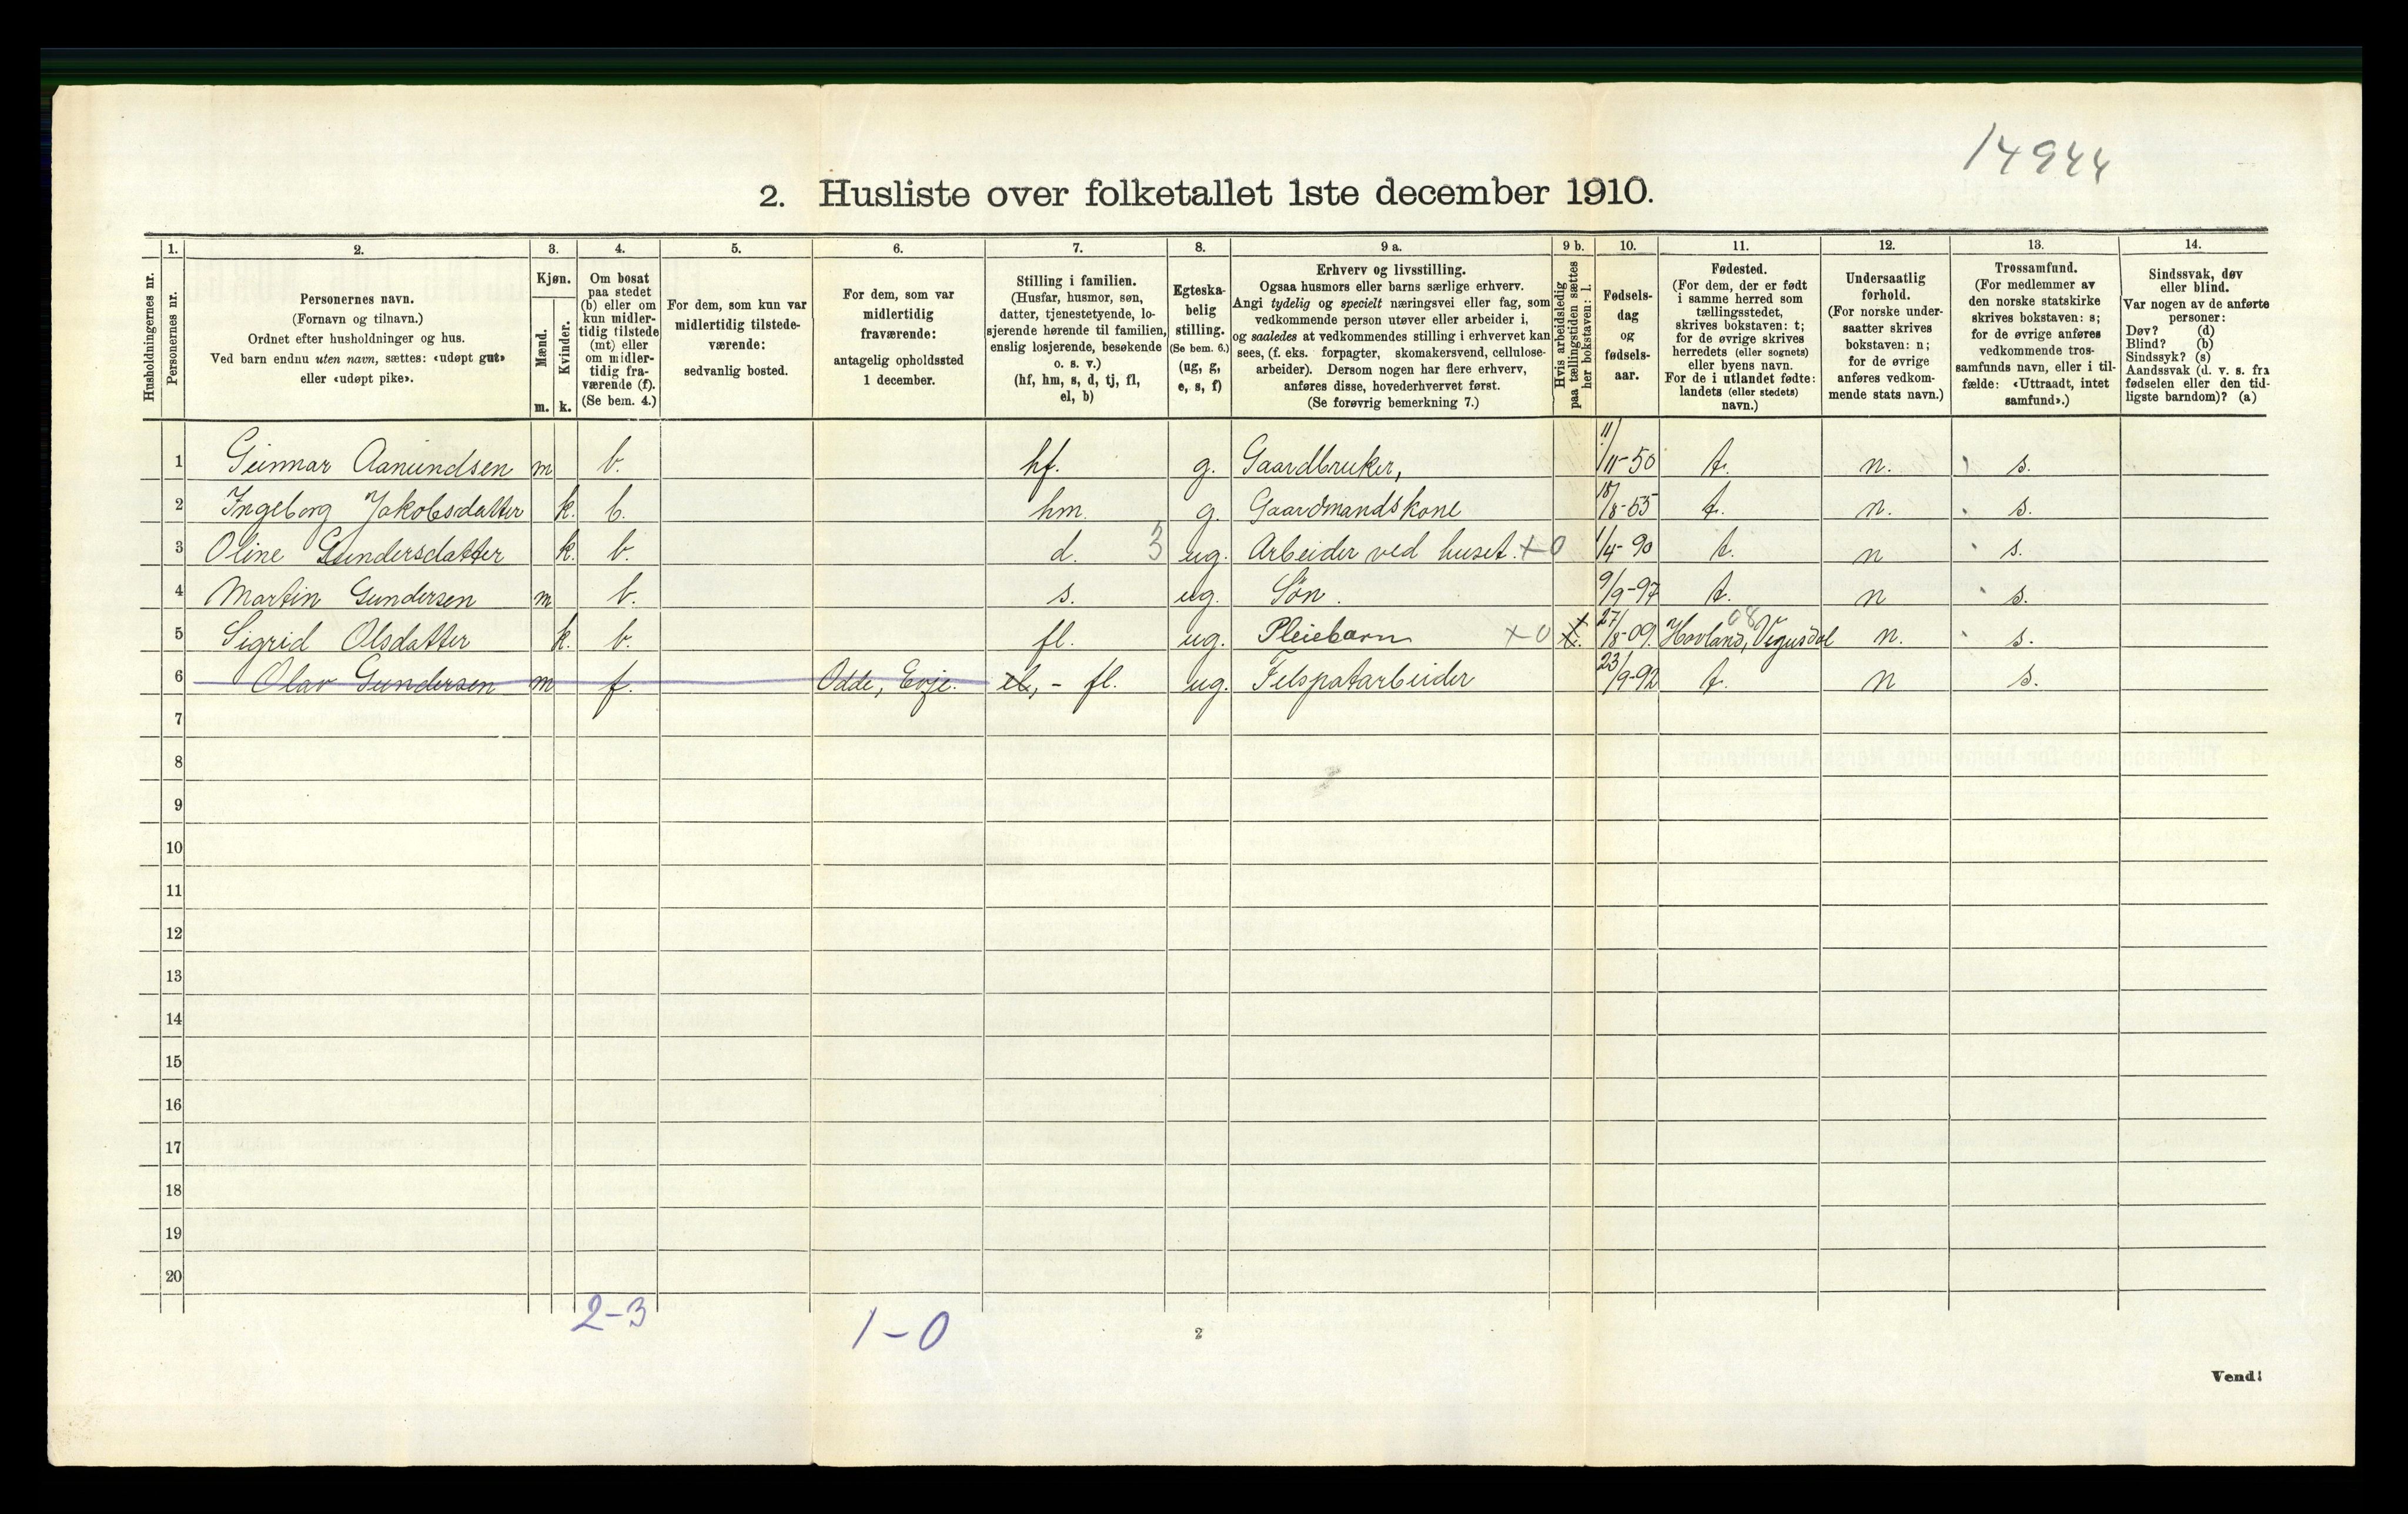 14944
2. Husliste over folketallet 1ste december 1910.
1. 2. 3. 4. 5. 6. 7. 8. 9 a. 9 b. 10. 11. 12. 13. 14.
Husholdningernes nr.
Personernes nr.
Personernes navn.
(Fornavn og tilnavn.)
Ordnet efter husholdninger og hus.
Ved barn endnu uten navn, sættes: «udøpt gut»
eller «udøpt pike».
Kjøn.
Mænd.
Kvinder.
m. k.
Om bosat
paa stedet
(b) eller om
kun midler-
tidig tilstede
(mt) eller
om midler-
tidig fra-
værende (f).
(Se bem. 4.)
For dem, som kun var
midlertidig tilstede-
værende:
sedvanlig bosted.
For dem, som var
midlertidig
fraværende:
antagelig opholdssted
1 december.
Stilling i familien.
(Husfar, husmor, søn,
datter, tjenestetyende, lo-
sjerende hørende til familien,
enslig losjerende, besøkende
o. s. v.)
(hf, hm, s, d, tj, fl,
el, b)
Egteska-
belig
stilling.
(Se bem. 6.)
(ug, g,
e, s, f)
Erhverv og livsstilling.
Ogsaa husmors eller barns særlige erhverv.
Angi tydelig og specielt næringsvei eller fag, som
vedkommende person utøver eller arbeider i,
og saaledes at vedkommendes stilling i erhvervet kan
sees, (f. eks. forpagter, skomakersvend, cellulose-
arbeider). Dersom nogen har flere erhverv,
anføres disse, hovederhvervet først.
(Se forøvrig bemerkning 7.)
Hvis arbeidsledig
paa tællingstiden sættes
her bokstaven: l.
Fødsels-
dag
og
fødsels-
aar.
Fødested.
(For dem, der er født
i samme herred som
tællingsstedet,
skrives bokstaven: t;
for de øvrige skrives
herredets (eller sognets)
eller byens navn.
For de i utlandet fødte:
landets (eller stedets)
navn.)
Undersaatlig
forhold.
(For norske under-
saatter skrives
bokstaven: n;
for de øvrige
anføres vedkom-
mende stats navn.)
Trossamfund.
(For medlemmer av
den norske statskirke
skrives bokstaven: s;
for de øvrige anføres
vedkommende tros-
samfunds navn, eller i til-
fælde: «Uttraadt, intet
samfund».)
Sindssvak, døv
eller blind.
Var nogen av de anførte
personer:
Døv? (d)
Blind? (b)
Sindssyk? (s)
Aandssvak (d. v. s. fra
fødselen eller den tid-
ligste barndom)? (a)
1 Gunnar Aanundsen m b. hf. g. Gaardbruker, 11/11-50 t. n. s.
2 Ingeborg Jakobsdatter k. b. hm. g. Gaardmandskone 18/8-55 t. n. s.
3 Oline Gundersdatter k. b. d. 3 ug. Arbeider ved huset. +0 1/4-90 t. n s.
4 Martin Gundersen m b. s. ug. Søn. 9/9-97 t. n s.
5 Sigrid Olsdatter k. b. fl. ug. Pleiebarn +0 t. 27/8-09. 08 Hovland, Vegusdal n. s.
6 Olav Gundersen m f. Odde, Evje. el, - fl. ug. Felspatarbeider 23/9-92 t. n s.
7
8
9
10
11
12
13
14
15
16
17
18
19
20
2-3
1-0
2
Vend!